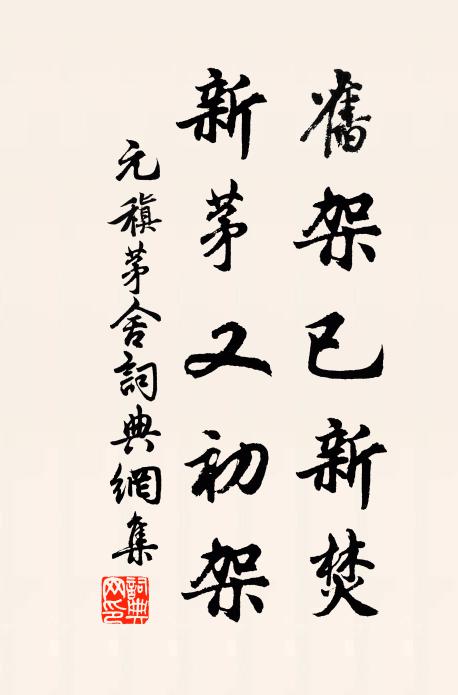 舊架已新焚
新茅又初架
元稹茅舍詞典網集
詞典网印